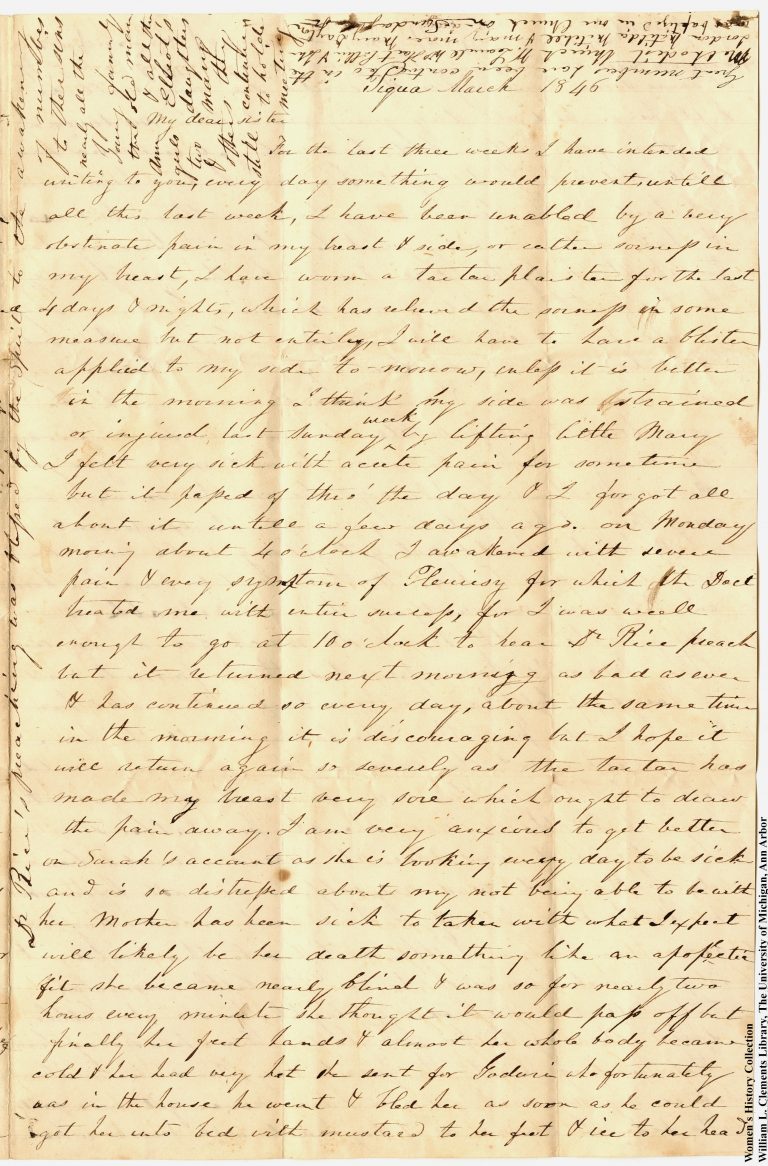 Piqua March 1846
My dear sister
For the last three weeks I have intended
writing to you, every day something would prevent untill
all this last week, I have been unabled by a very
obstinate pain in my breast & side, or rather soreness in
my breast, I have worn a tartar plaister for the last
4 days & nights, which has relieved the soreness in some
measure but not entirley, I will have to have a blister
applied to my side to-morrow, unless it is better
in the morning I think my side was strained
or injured, last Sunday week by lifting little Mary
I felt very sick with acute pain for sometime
but it passed of thro' the day & I forgot all
about it untill a few days ago. on Monday
morning about 4 o'clock I awakened with severe
pain & every symptom of Pleurisy for which the Doct
treated me with entire success, for I was well
enough to go at 10 o'clock to hear Dr Rice preach
but it returned next morning as bad as ever
& has continued so every day, about the same time
in the morning it is discouraging but I hope it
will return again so severely as the tartar has
made my breast very sore which ought to draw
the pain away. I am very anxious to get better
on Sarah's account as she is looking every day to be sick
and is so distressed abouts my not being able to be with
her Mother has been sick to taken with what I expect
will likely be her death something like an apoplectic
fit she became nearly blind & was so for nearly two
hours every minute she thought it would pass off but
finally her feet hands & almost her whole body became
cold & her head very hot she sent for Godwin who fortunately
was in the house he went & bled her as soon as he could
got her into bed with mustard to her feet & ice to her head
Dr Rice's preaching was blessed by the Spirit to the awakening
of numbers
of other sons
nearly all the
young family
that old man
& all the
Elliot's
daughters
& many
others they
still continue
to hold
meeting
Great numbers have been converted in the
Methodist Church
was baptized in our Church on a Sunday
Women's History Collection
William L. Clements Library, The University of Michigan, Ann Arbor